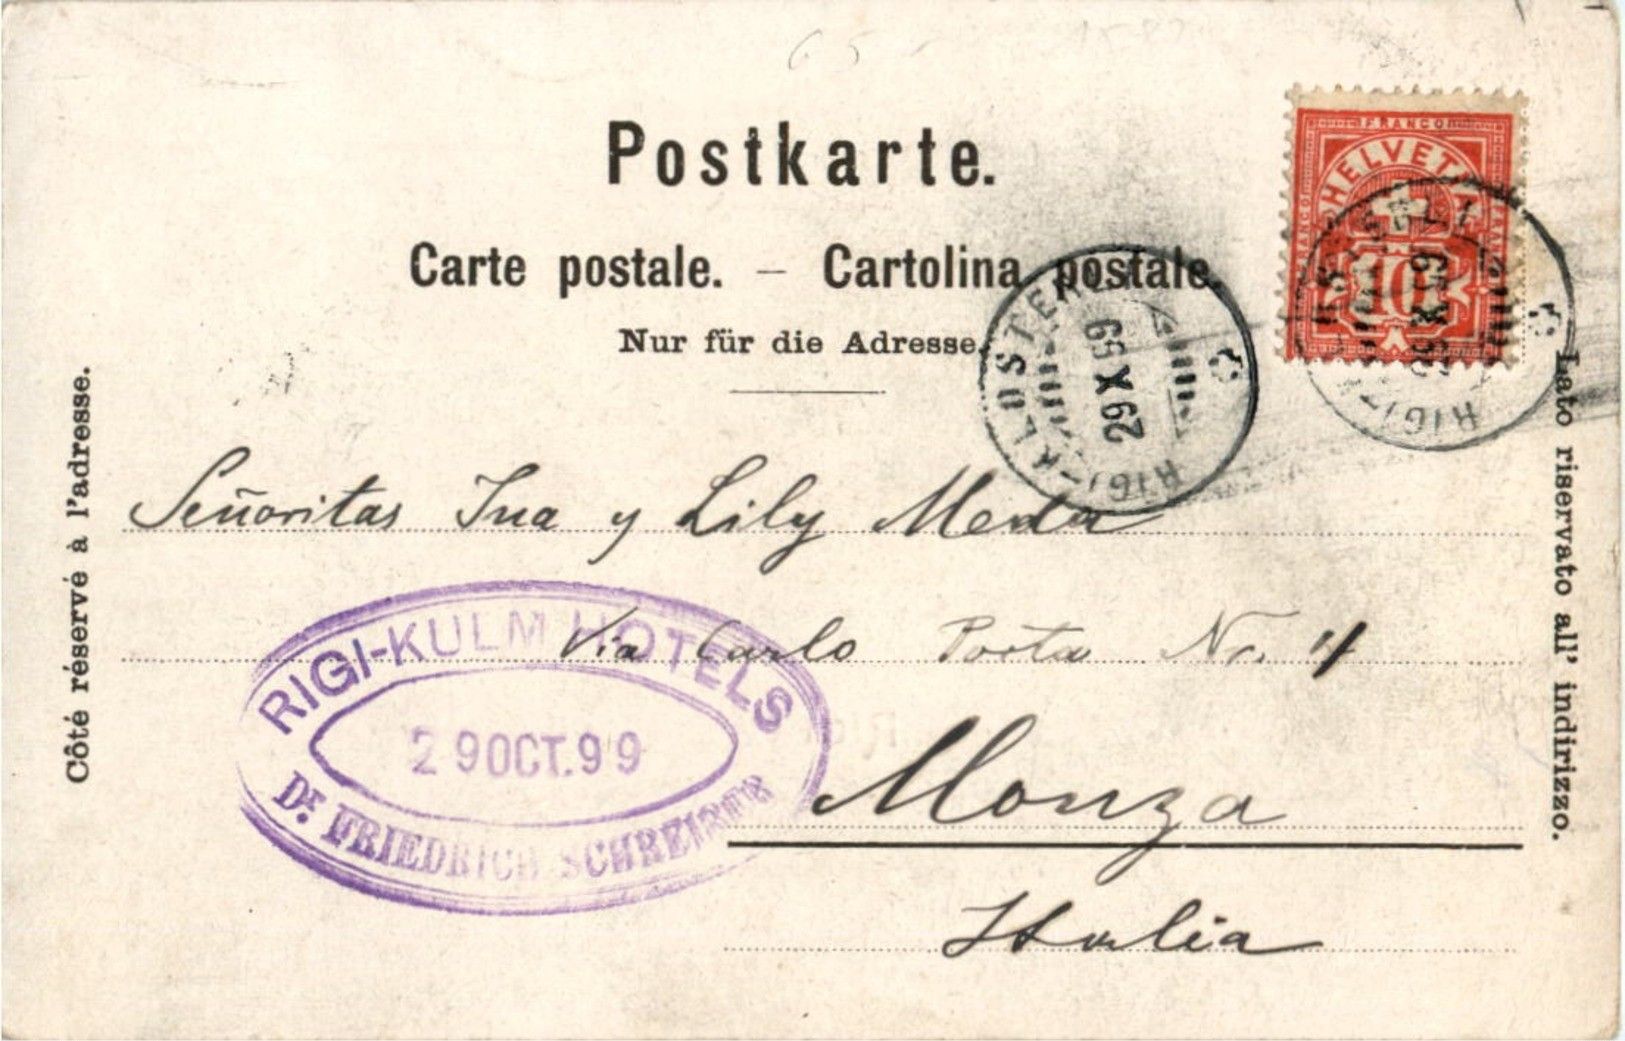 Postkarte.
Carte postale. – Cartolina postale.
Nur für die Adresse.
Côté réservé à l'adresse.
Lato riservato all' indirizzo.
FRANCO
HELVETIA
FRANCO
10
29 X 99
RIGI
29 X 99
RIGI
Señoritas Ina y Lily Meda
Via Carlo Porta Nr. 11
Monza
Italia
RIGI-KULM HOTELS
29 OCT. 99
Dr. FRIEDRICH SCHREIBER